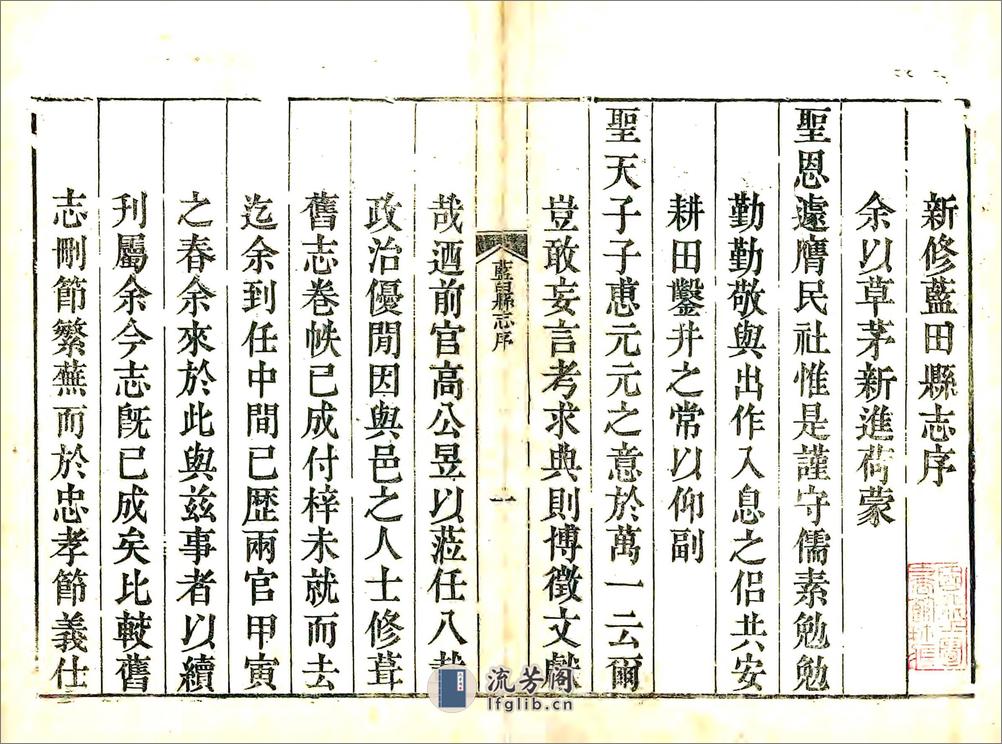 新修藍田縣志序
余以草茅新進荷蒙
聖恩遽膺民社惟是謹守儒素勉勉
勤勤敬與出作入息之侶共安
耕田鑿井之常以仰副
聖天子子惠元元之意於萬一云爾
豈敢妄言考求典則博徵文獻
藍田縣志序
一
哉迺前官高公昱以蒞任八載
政治優閒因與邑之人士修葺
舊志卷帙已成付梓未就而去
迄余到任中間已歷兩官甲寅
之春余來於此與兹事者以續
刋屬余今志既已成矣比較舊
志刪節繁蕪而於忠孝節義仕
流芳閣
lfglib.cn